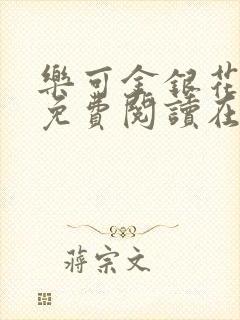 樂可金銀花
免費閱讀在
蔣宗文